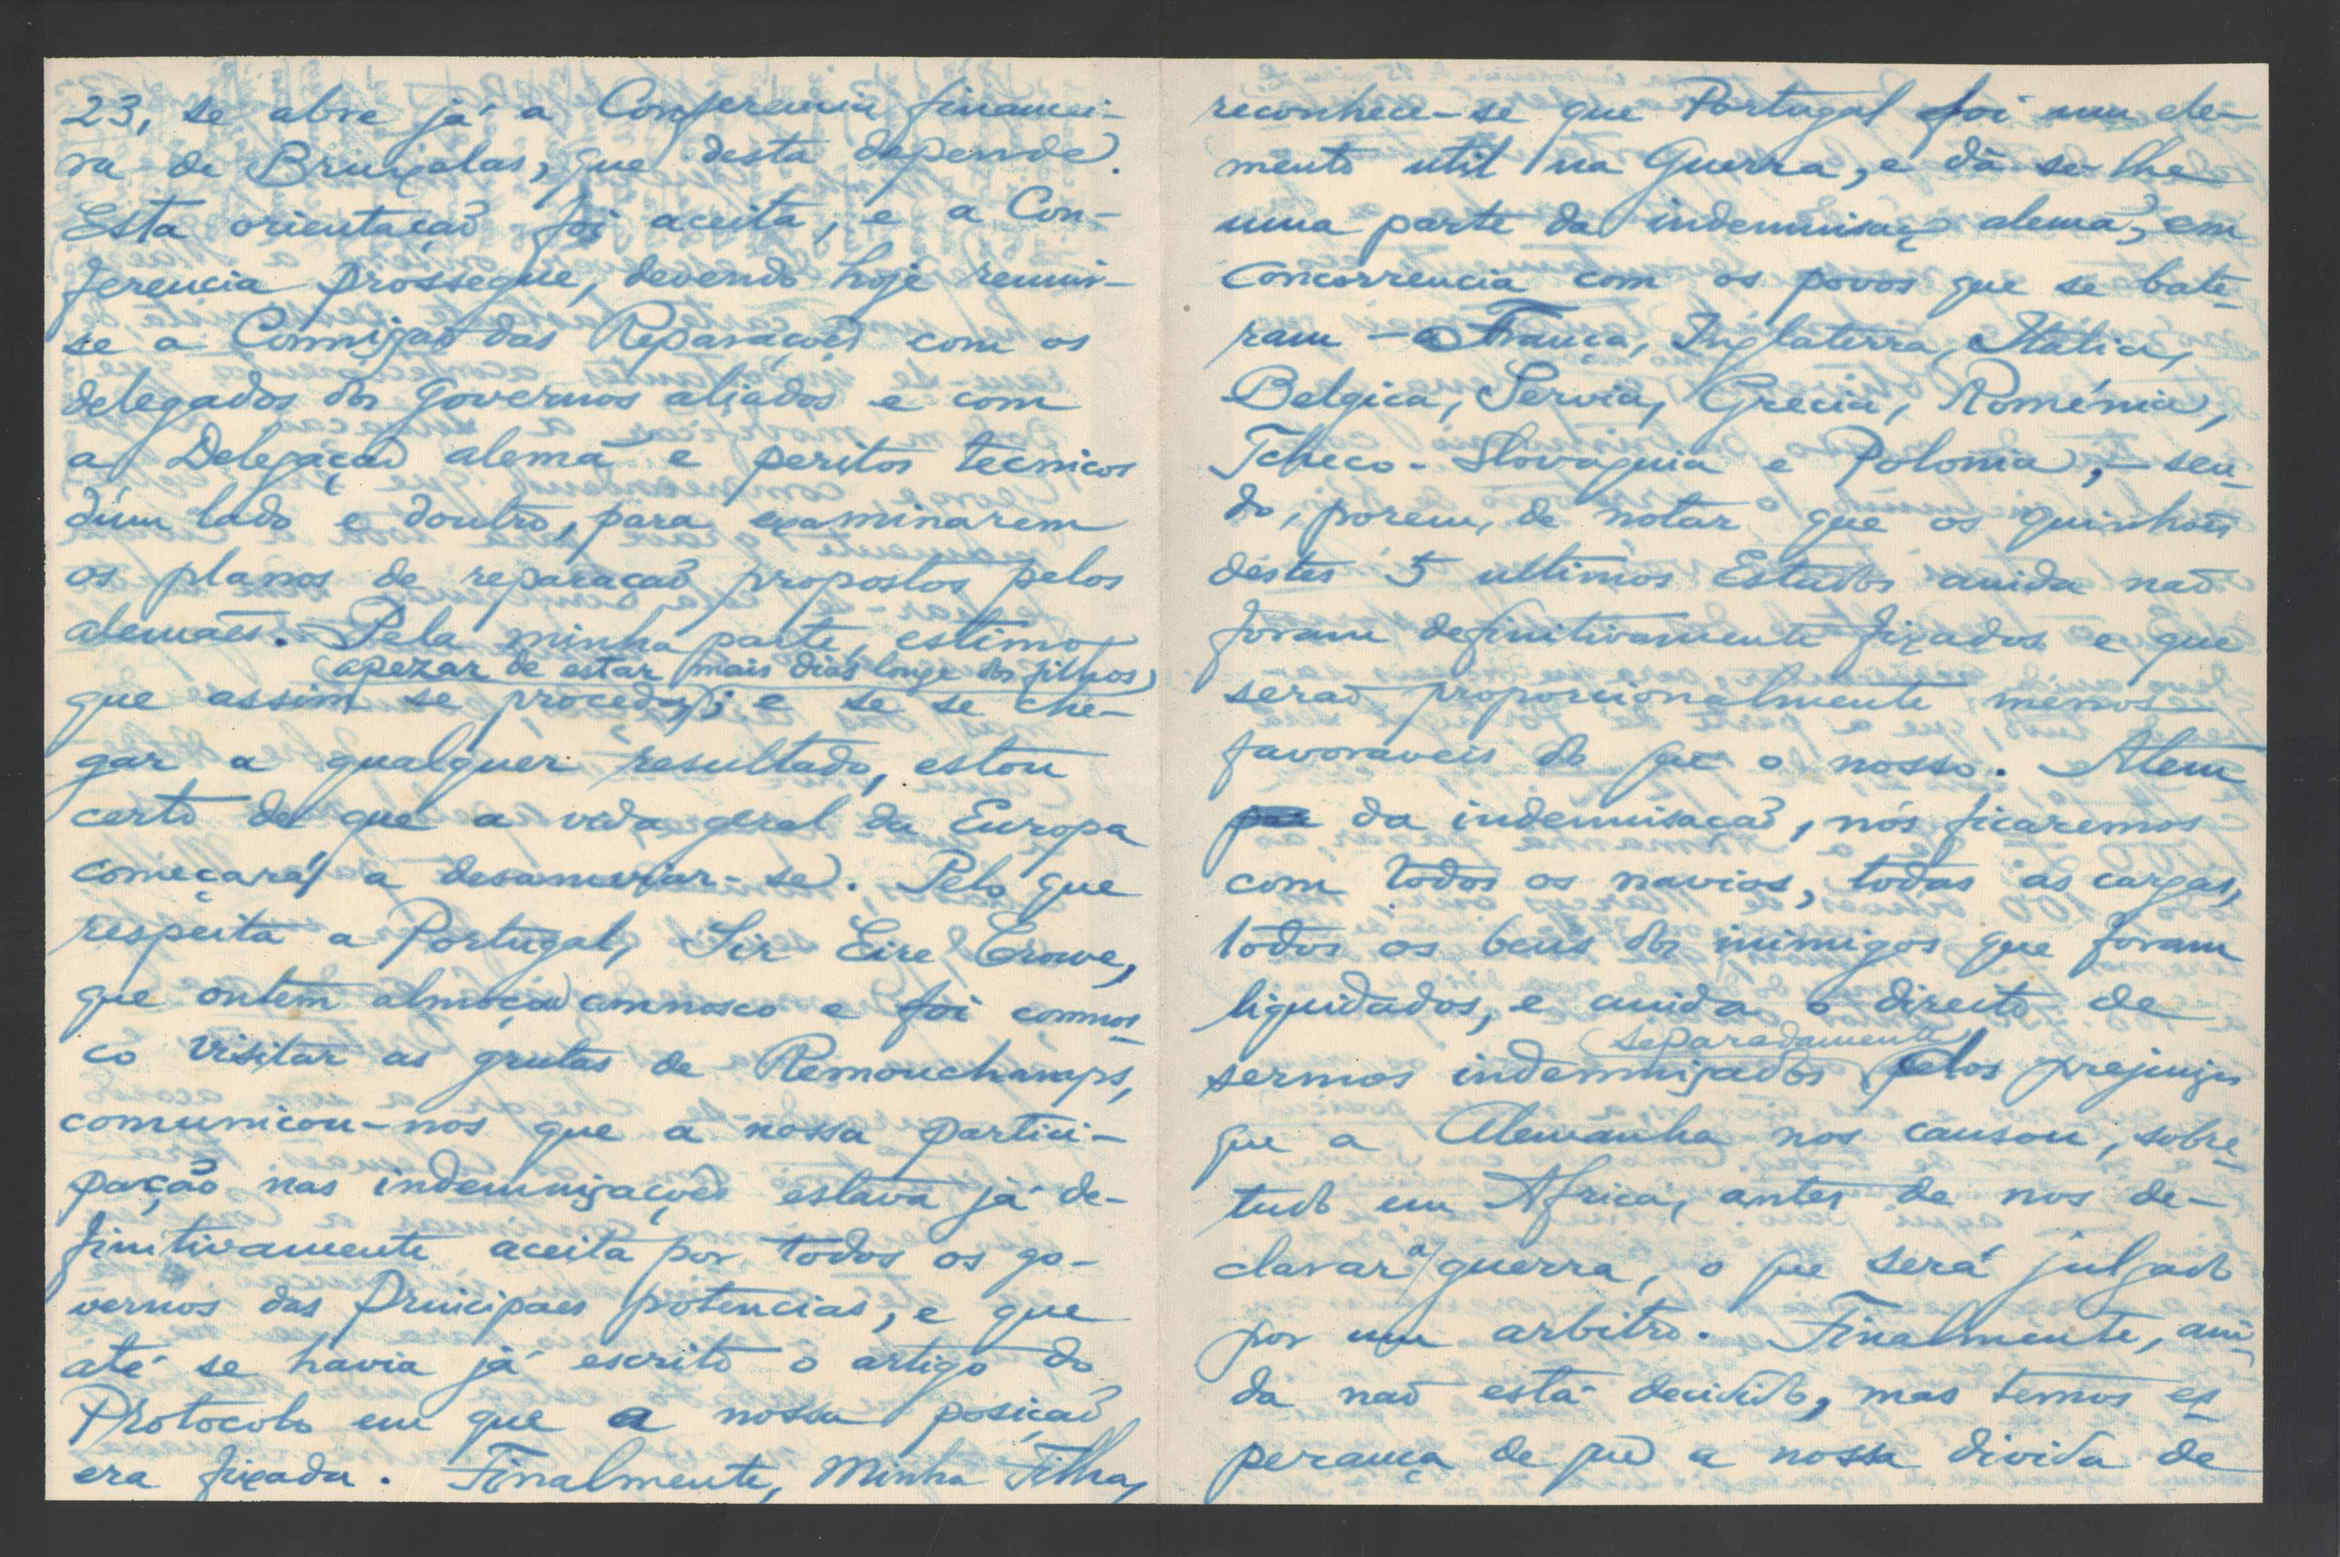 23, se abre já a Conferencia financei-
ra de Bruxelas, que desta depende.
Esta orientação foi aceita, e a Con-
ferencia prossegue, devendo hoje reunir-
se a Comissão das Reparações com os
delegados dos Governos aliados e com
a Delegação alemã e peritos tecnicos
dúm lado e doutro, para examinarem
os planos de reparação propostos pelos
alemães. Pela minha parte, estimo
(apezar de estar mais dias longe dos filhos)
que assim se proceda; e se se che-
gar a qualquer resultado, estou
certo de que a vida geral da Europa
começará a desanuviar-se. Pelo que
respeita a Portugal, Sir Eire Crowe,
que ontem almoçou comnosco e foi comnos-
co visitar as grutas de Remouchamps,
comunicou-nos que a nossa partici-
pação nas indemnizações estava já de-
finitivamente aceita por todos os go-
vernos das Principaes potencias, e que
até se havia já escrito o artigo do
Protocolo em que a nossa posição
era fixada. Finalmente, Minha Filha,
reconhece-se que Portugal foi um ele-
mento util na Guerra, e dá-se-lhe
uma parte da indemnisaç alemã, em
concorrencia com os povos que se bate-
ram - a França, Inglaterra, Italia,
Belgica, Servia, Grecia, Roménia,
Tcheco-Slovaquia e Polonia, - sen-
do, porem, de notar que os quinhões
déstes 5 ultimos Estados ainda não
foram definitivamente fixados e que
serão proporcionalmente menos
favoraveis do que o nosso. Alem
da indemnisação, nós ficaremos
com todos os navios, todas as cargas,
todos os bens dos inimigos que foram
liquidados, e ainda o direito de
separadamente
sermos indemnizados pelos prejuizos
que a Alemanha nos causou, sobre-
tudo em Africa, antes de nos de-
clarar a guerra, o que será julgado
por um arbitro. Finalmente, ain-
da não está decidido, mas temos es-
perança de que a nossa divida de